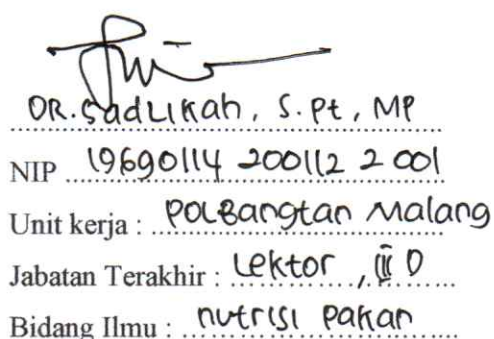 DR. Sadlikah, S.Pt, MP
NIP 19690114 200112 2 001
Unit kerja : Polbangtan Malang
Jabatan Terakhir : Lektor, III D
Bidang Ilmu : nutrisi pakan